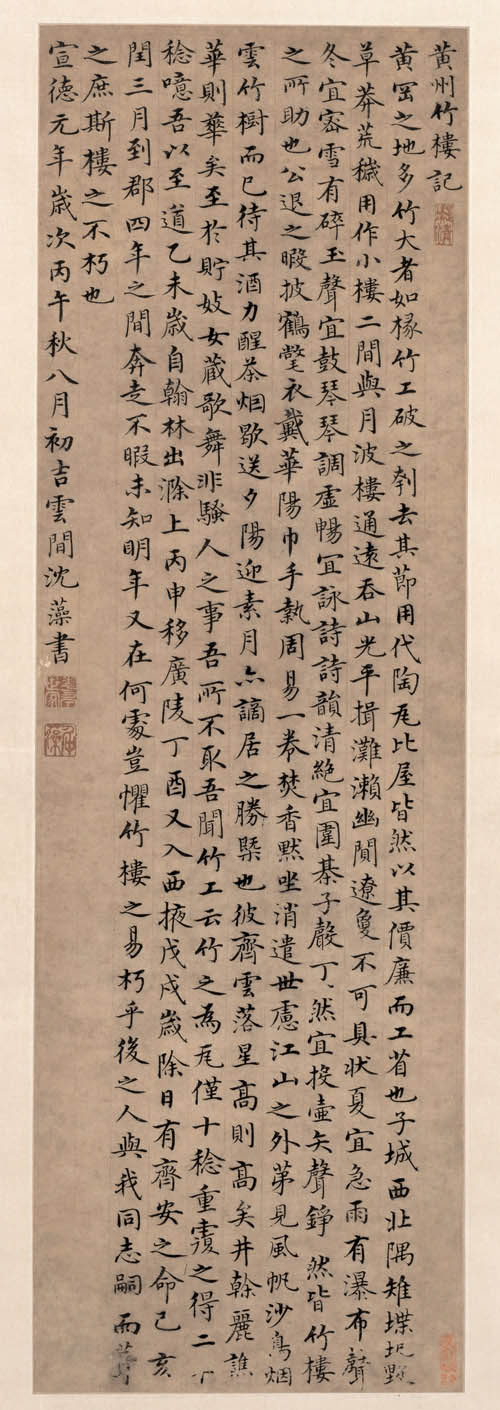 黃州竹樓記
黃岡之地多竹大者如椽竹工破之刳去其節用代陶瓦比屋皆然以其價廉而工省也子城西北隅雉堞圮毀
草莽荒穢用作小樓二間與月波樓通遠吞山光平揖灘瀨幽闃遼夐不可具狀夏宜急雨有瀑布聲
冬宜密雪有碎玉聲宜鼓琴琴調虛暢宜詠詩詩韻清絕宜圍棊子聲丁丶然宜投壺矢聲錚丶然皆竹樓
之所助也公退之暇披鶴氅衣戴華陽巾手執周易一卷焚香默坐消遣世慮江山之外第見風帆沙鳥烟
雲竹樹而已待其酒力醒茶烟歇送夕陽迎素月亦謫居之勝槩也彼齊雲落星高則高矣井榦麗譙
華則華矣至於貯妓女藏歌舞非騷人之事吾所不取吾聞竹工云竹之為瓦僅十稔重覆之得二十
稔噫吾以至道乙未歲自翰林出滁上丙申移廣陵丁酉又入西掖戊戌歲除日有齊安之命己亥
閏三月到郡四年之間奔走不暇未知明年又在何處豈懼竹樓之易朽乎後之人與我同志嗣而葺
之庶斯樓之不朽也
宣德元年歲次丙午秋八月初吉雲間沈藻書